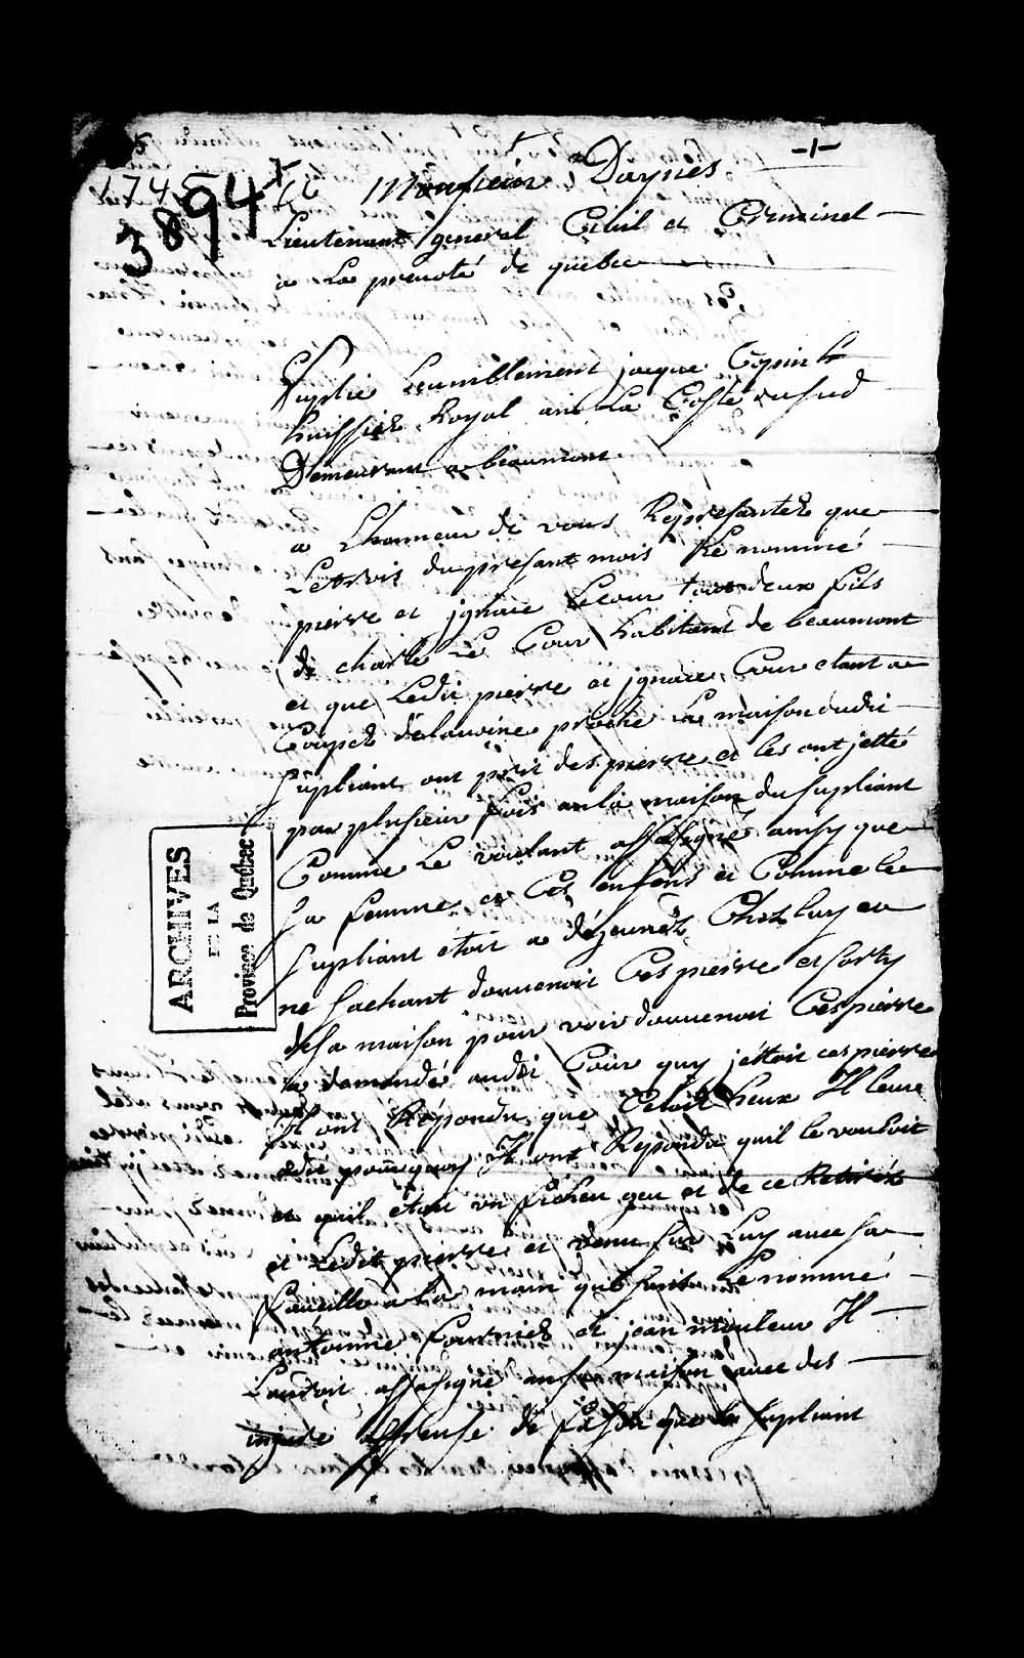 -1-
174
3894
Monsieur Daynes
Lieutenant general Civil et Criminel
a La prevoté de quebec
Suplie humblement jacque
huissier Royal en La Coste du sud
Demeurant a beaumont
a Lhonneur de vous Representer que
Le trois du presant mois Le nommé
pierre et jgnace Lecour tous deux fils
de charle Le Cour habitant de beaumont
et que Ledit pierre et jgnace Cour etant a
Couper delavoine proche La maison dudit
supliant ont prit des pierre et les ont jetté
par plusieur fois an la maison du supliant
Comme Le voulant assasigné ainsy que
sa femme et Ces enfens et Comme le
supliant etoit a dejeuner Ches luy et
ne sachant douvenoit Ces pierre et sorty
de sa maison pour voir douvenoit Ces pierre
a demandé audit Cour quy jettoit ces pierre
Il ont Repondu que Cetoit heux Il leur
a dit pourquoy Il ont Repondu quil le vouloit
et quil etoit un geu et de ce Retirér
et Ledit pierre et venu sur Luy avec sa
faucille a la main Le nommé
antoinne fournier et jean Il
Lauroit assasigné an sa maison avec des
injure afreuse de fason que le supliant
ARCHIVES
DE LA
Province de Québec